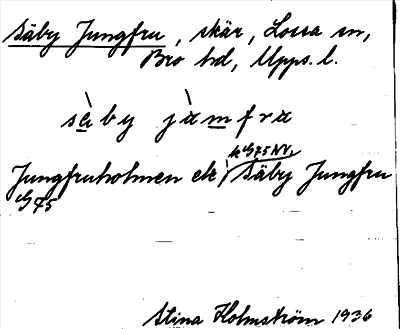 Säby Jungfru, skär, Lossa sn,
Bro hd, Upps. l.
sàby jàmfra
k G75 NV.
Jungfruholmen el. Säby Jungfru
G 75
Stina Holmström 1936